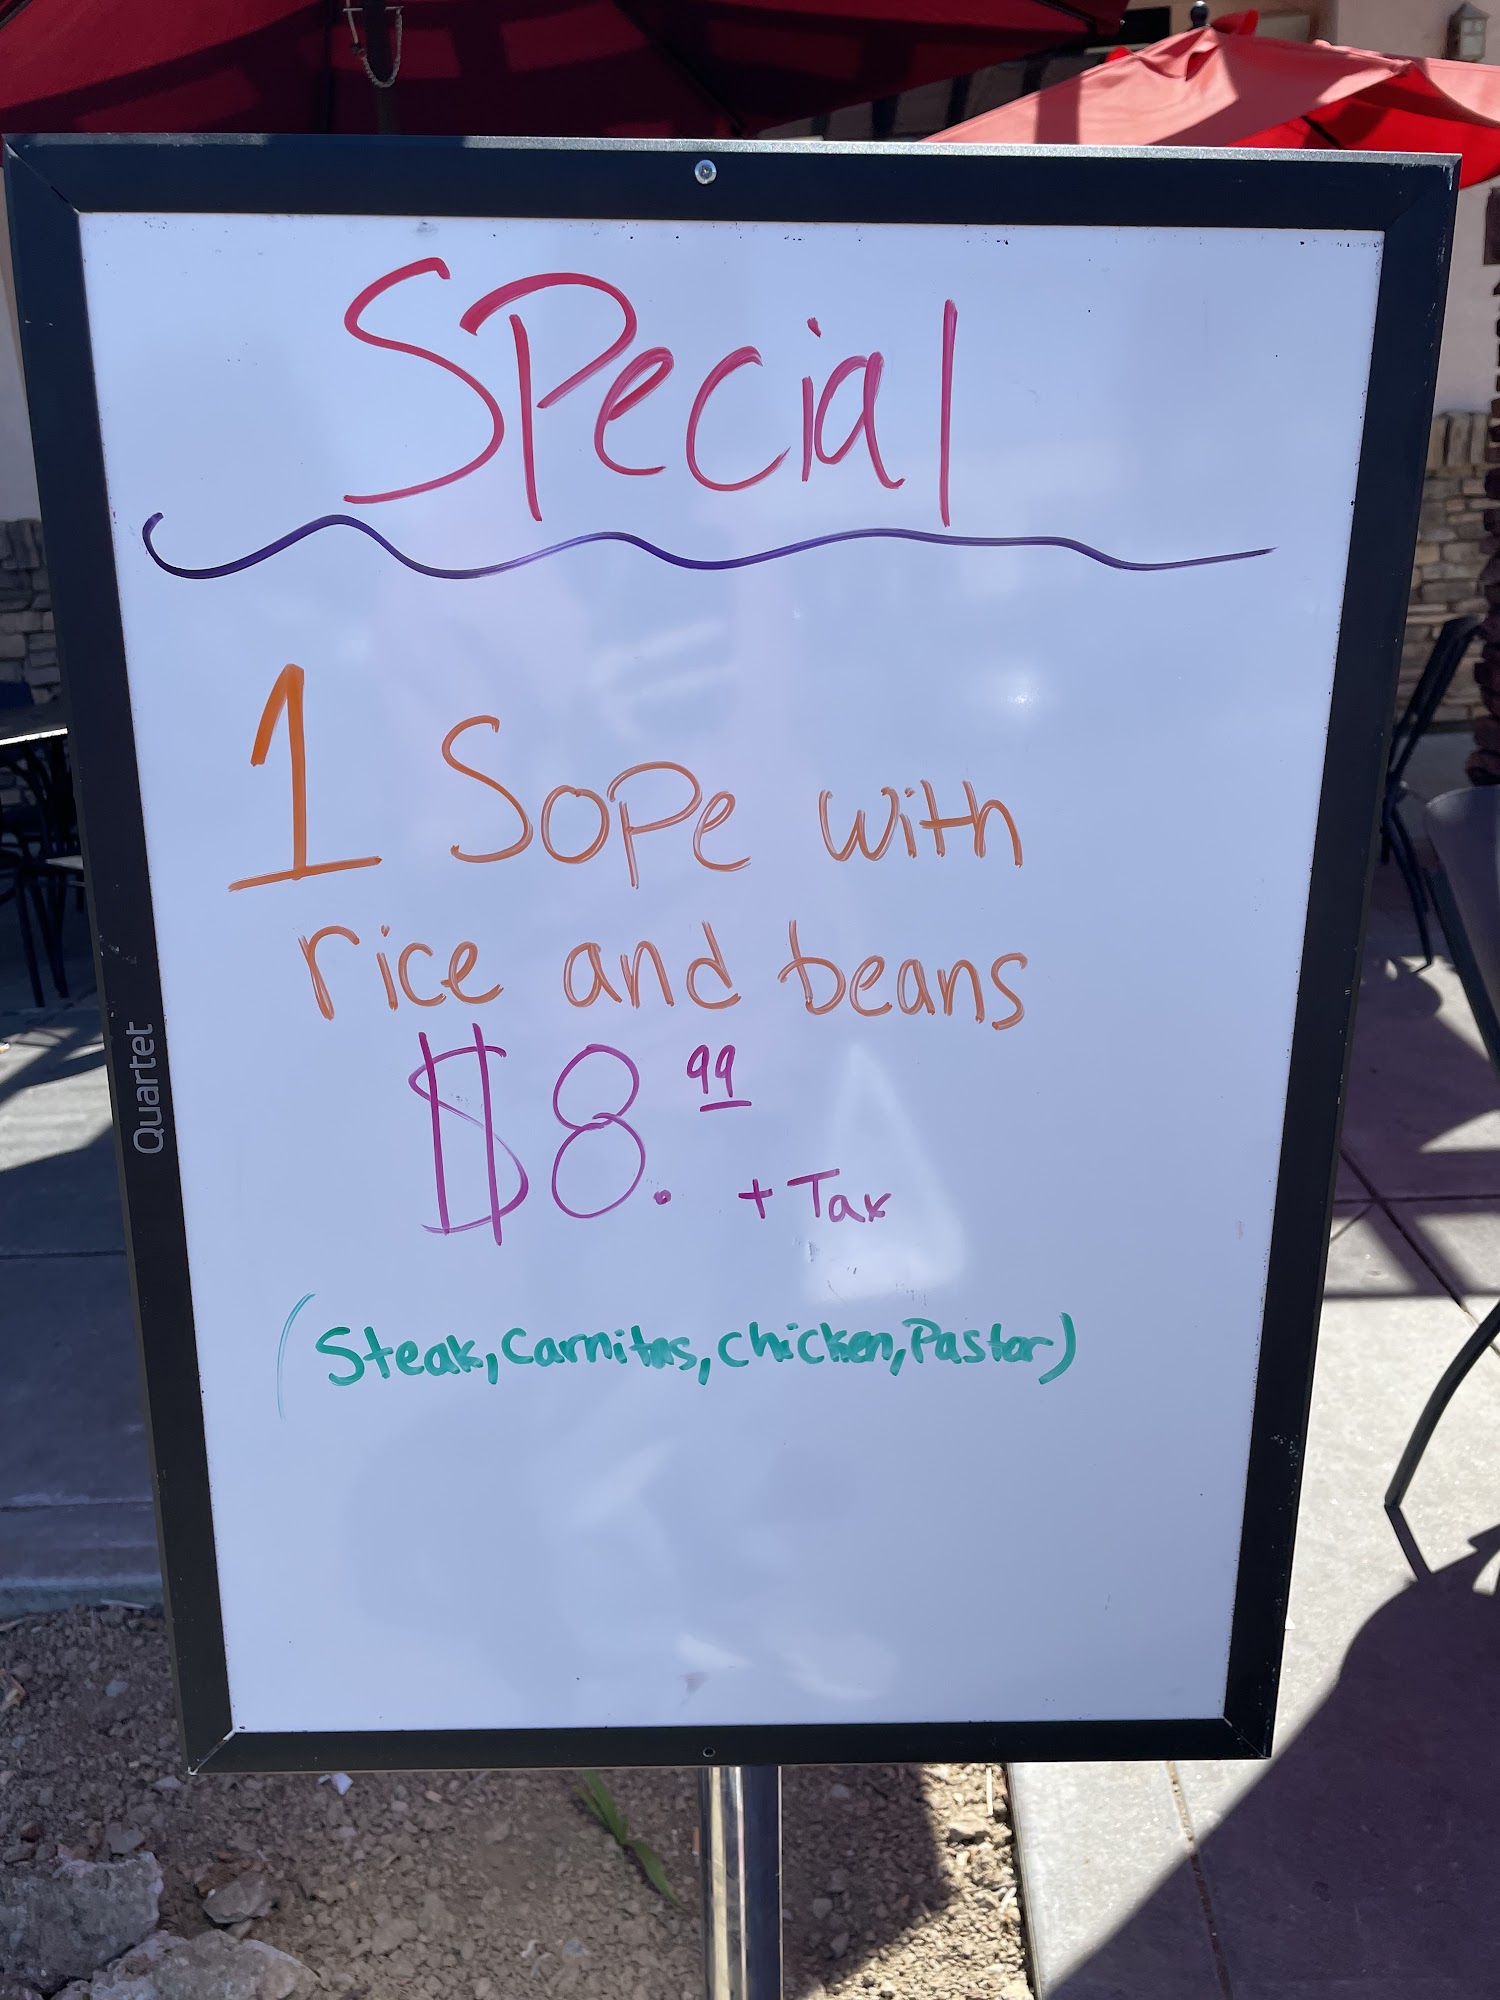 Special
1 Sope with
rice and beans
$8.99 + Tax
(Steak, Carnitas, chicken, Pastor)
Quartet